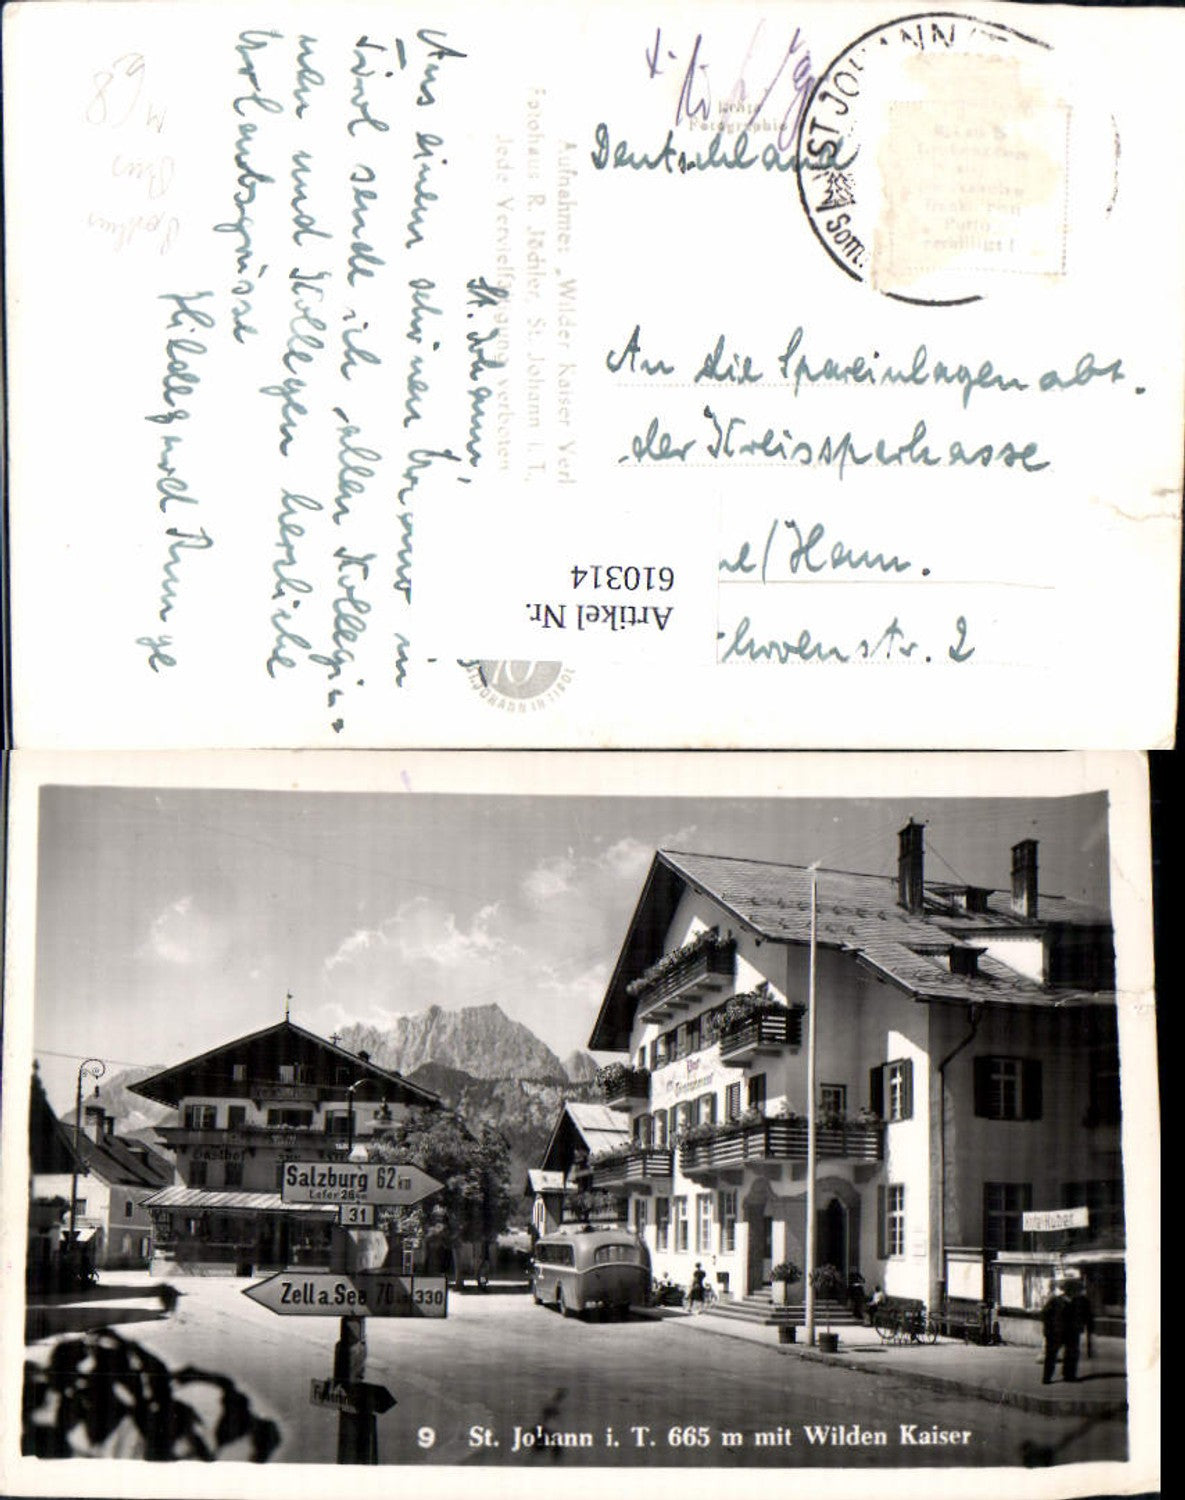 St. Johann,
Aus einem schönen Urlaub in
Tirol sende ich allen Kollegin=
nen und Kollegen herzliche
Urlaubsgrüsse
Hildegard Runge
Aufnahme: "Wilder Kaiser Verl
Fotohaus R. Jöchler, St. Johann i. T.
Jede Vervielfältigung verboten
Echte
Fotographie
Deutschland
ST JOHANN
Som
An die Spareinlagenabt.
der Kreissparkasse
e/Hann.
hovenstr. 2
Artikel Nr.
610314
ST. JOHANN IN TIROL
Gasthof
Post
Salzburg 62 km
Lofer 26 km
31
Zell a. See 70 330
Kino Huber
9 St. Johann i. T. 665 m mit Wilden Kaiser